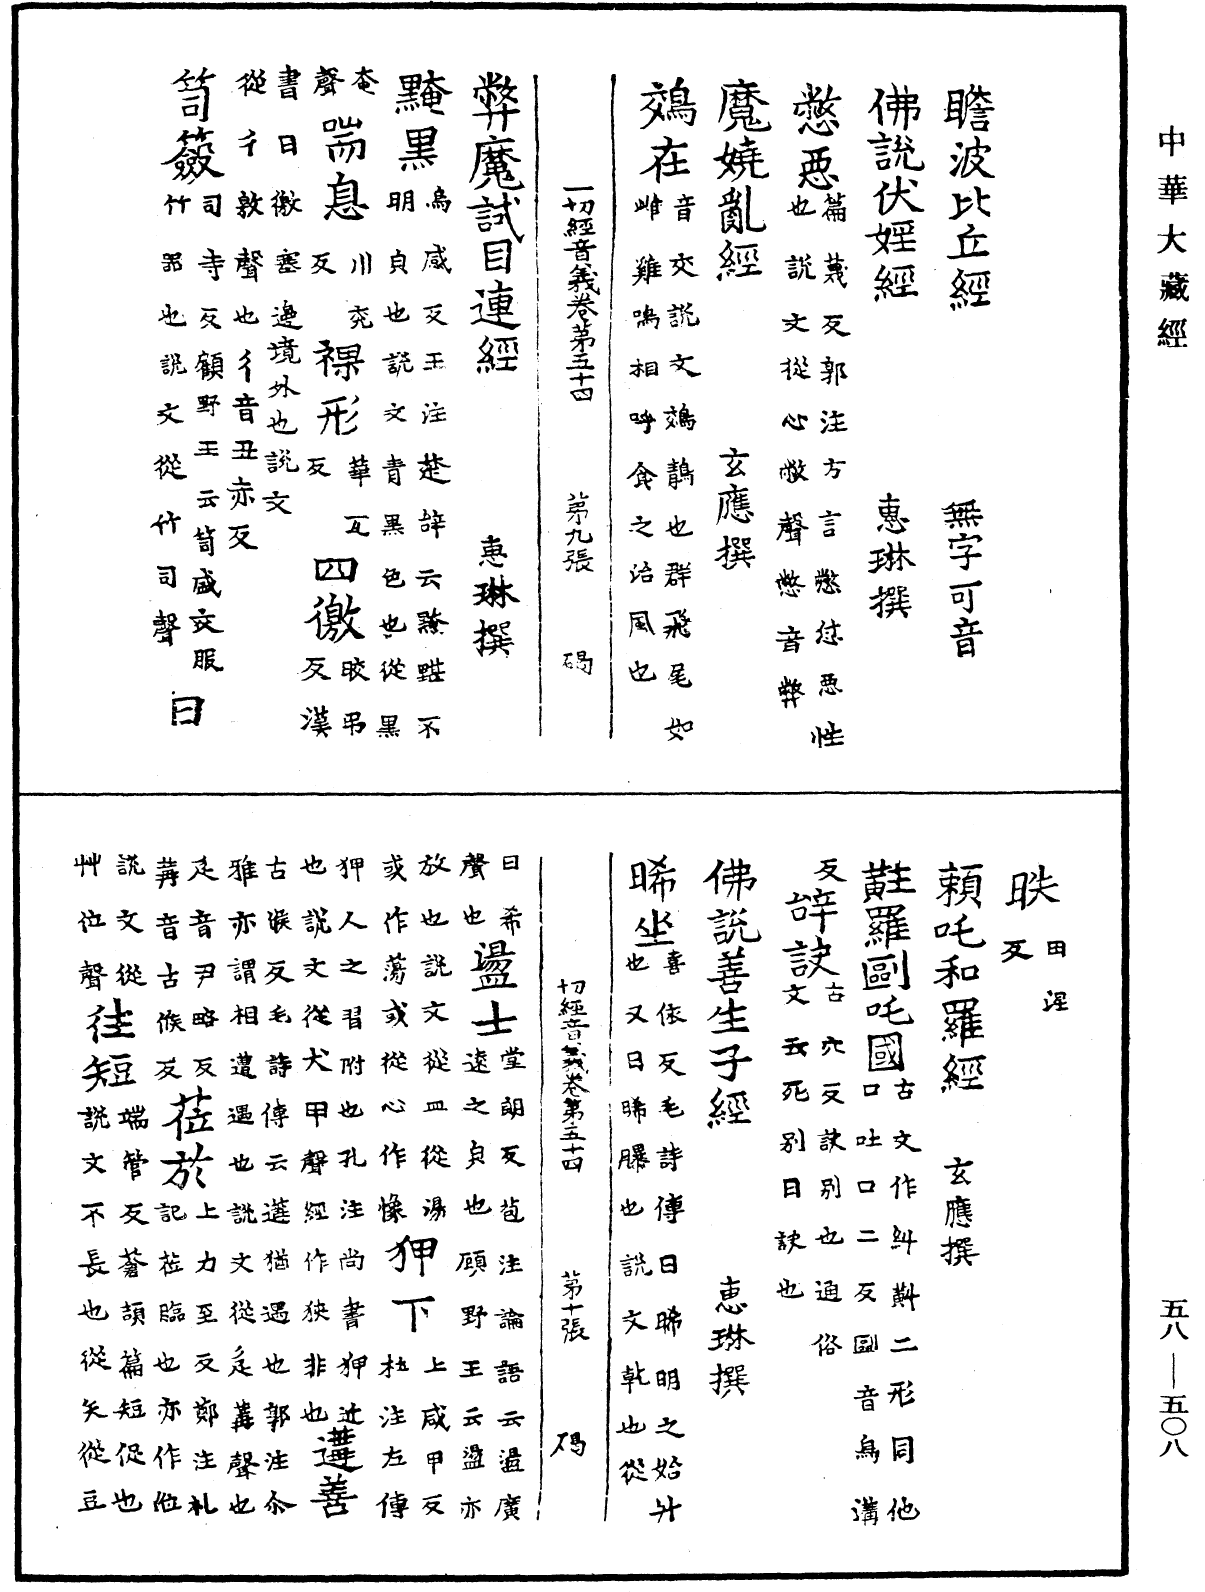 中華大藏經
瞻波比丘經　無字可音
佛說伏婬經　惠琳撰
憋惡篇蔑反郭注方言憋怤惡性
也說文從心敝聲憋音弊
魔嬈亂經　玄應撰
鵁在音交說文鵁鶄也群飛尾如
雌雞鳴相呼食之治風也
一切經音義卷第五十四　第九張　碣
弊魔試目連經　惠琳撰
黤黑烏感反王注楚辭云黤黮不
明貞也說文青黑色也從黑
奄聲喘息川兗反裸形華瓦反四徼皎弔反漢
書曰徼塞邊境外也說文
從彳敫聲也彳音丑亦反
笥簽司寺反顧野王云笥盛衣服
竹器也說文從竹司聲　曰
昳田涅反
賴吒和羅經　玄應撰
黈羅剾吒國古文作斢黈二形同他
口吐口二反剾音烏溝
反辞訣古穴反訣別也通俗
文云死別曰訣也
佛說善生子經　惠琳撰
晞坐喜依反毛詩傳曰晞明之始升
也又曰晞曝也說文乾也從
切經音義卷第五十四　第十張　碣
日希聲也盪士堂朗反苞注論語云盪廣
遠之貞也顧野王云盪亦
放也說文從皿從湯
或作蕩或從心作愓狎下上咸甲反
杜注左傳
狎人之習附也孔注尚書狎近
也說文從犬甲聲經作狹非也遘善
古候反毛詩傳云遘猶遇也郭注尒
雅亦謂相遭遇也說文從辵冓聲也
辵音尹略反
冓音古候反莅於上力至反鄭注札
記莅臨也亦作涖
說文從
艸位聲往短端管反蒼頡篇短促也
說文不長也從矢從豆
五八—五〇八